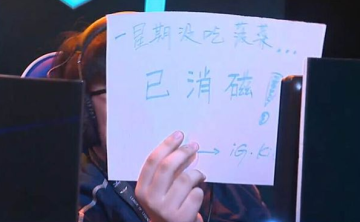 一星期没吃蒸菜...
已消磁!
→ iG.K